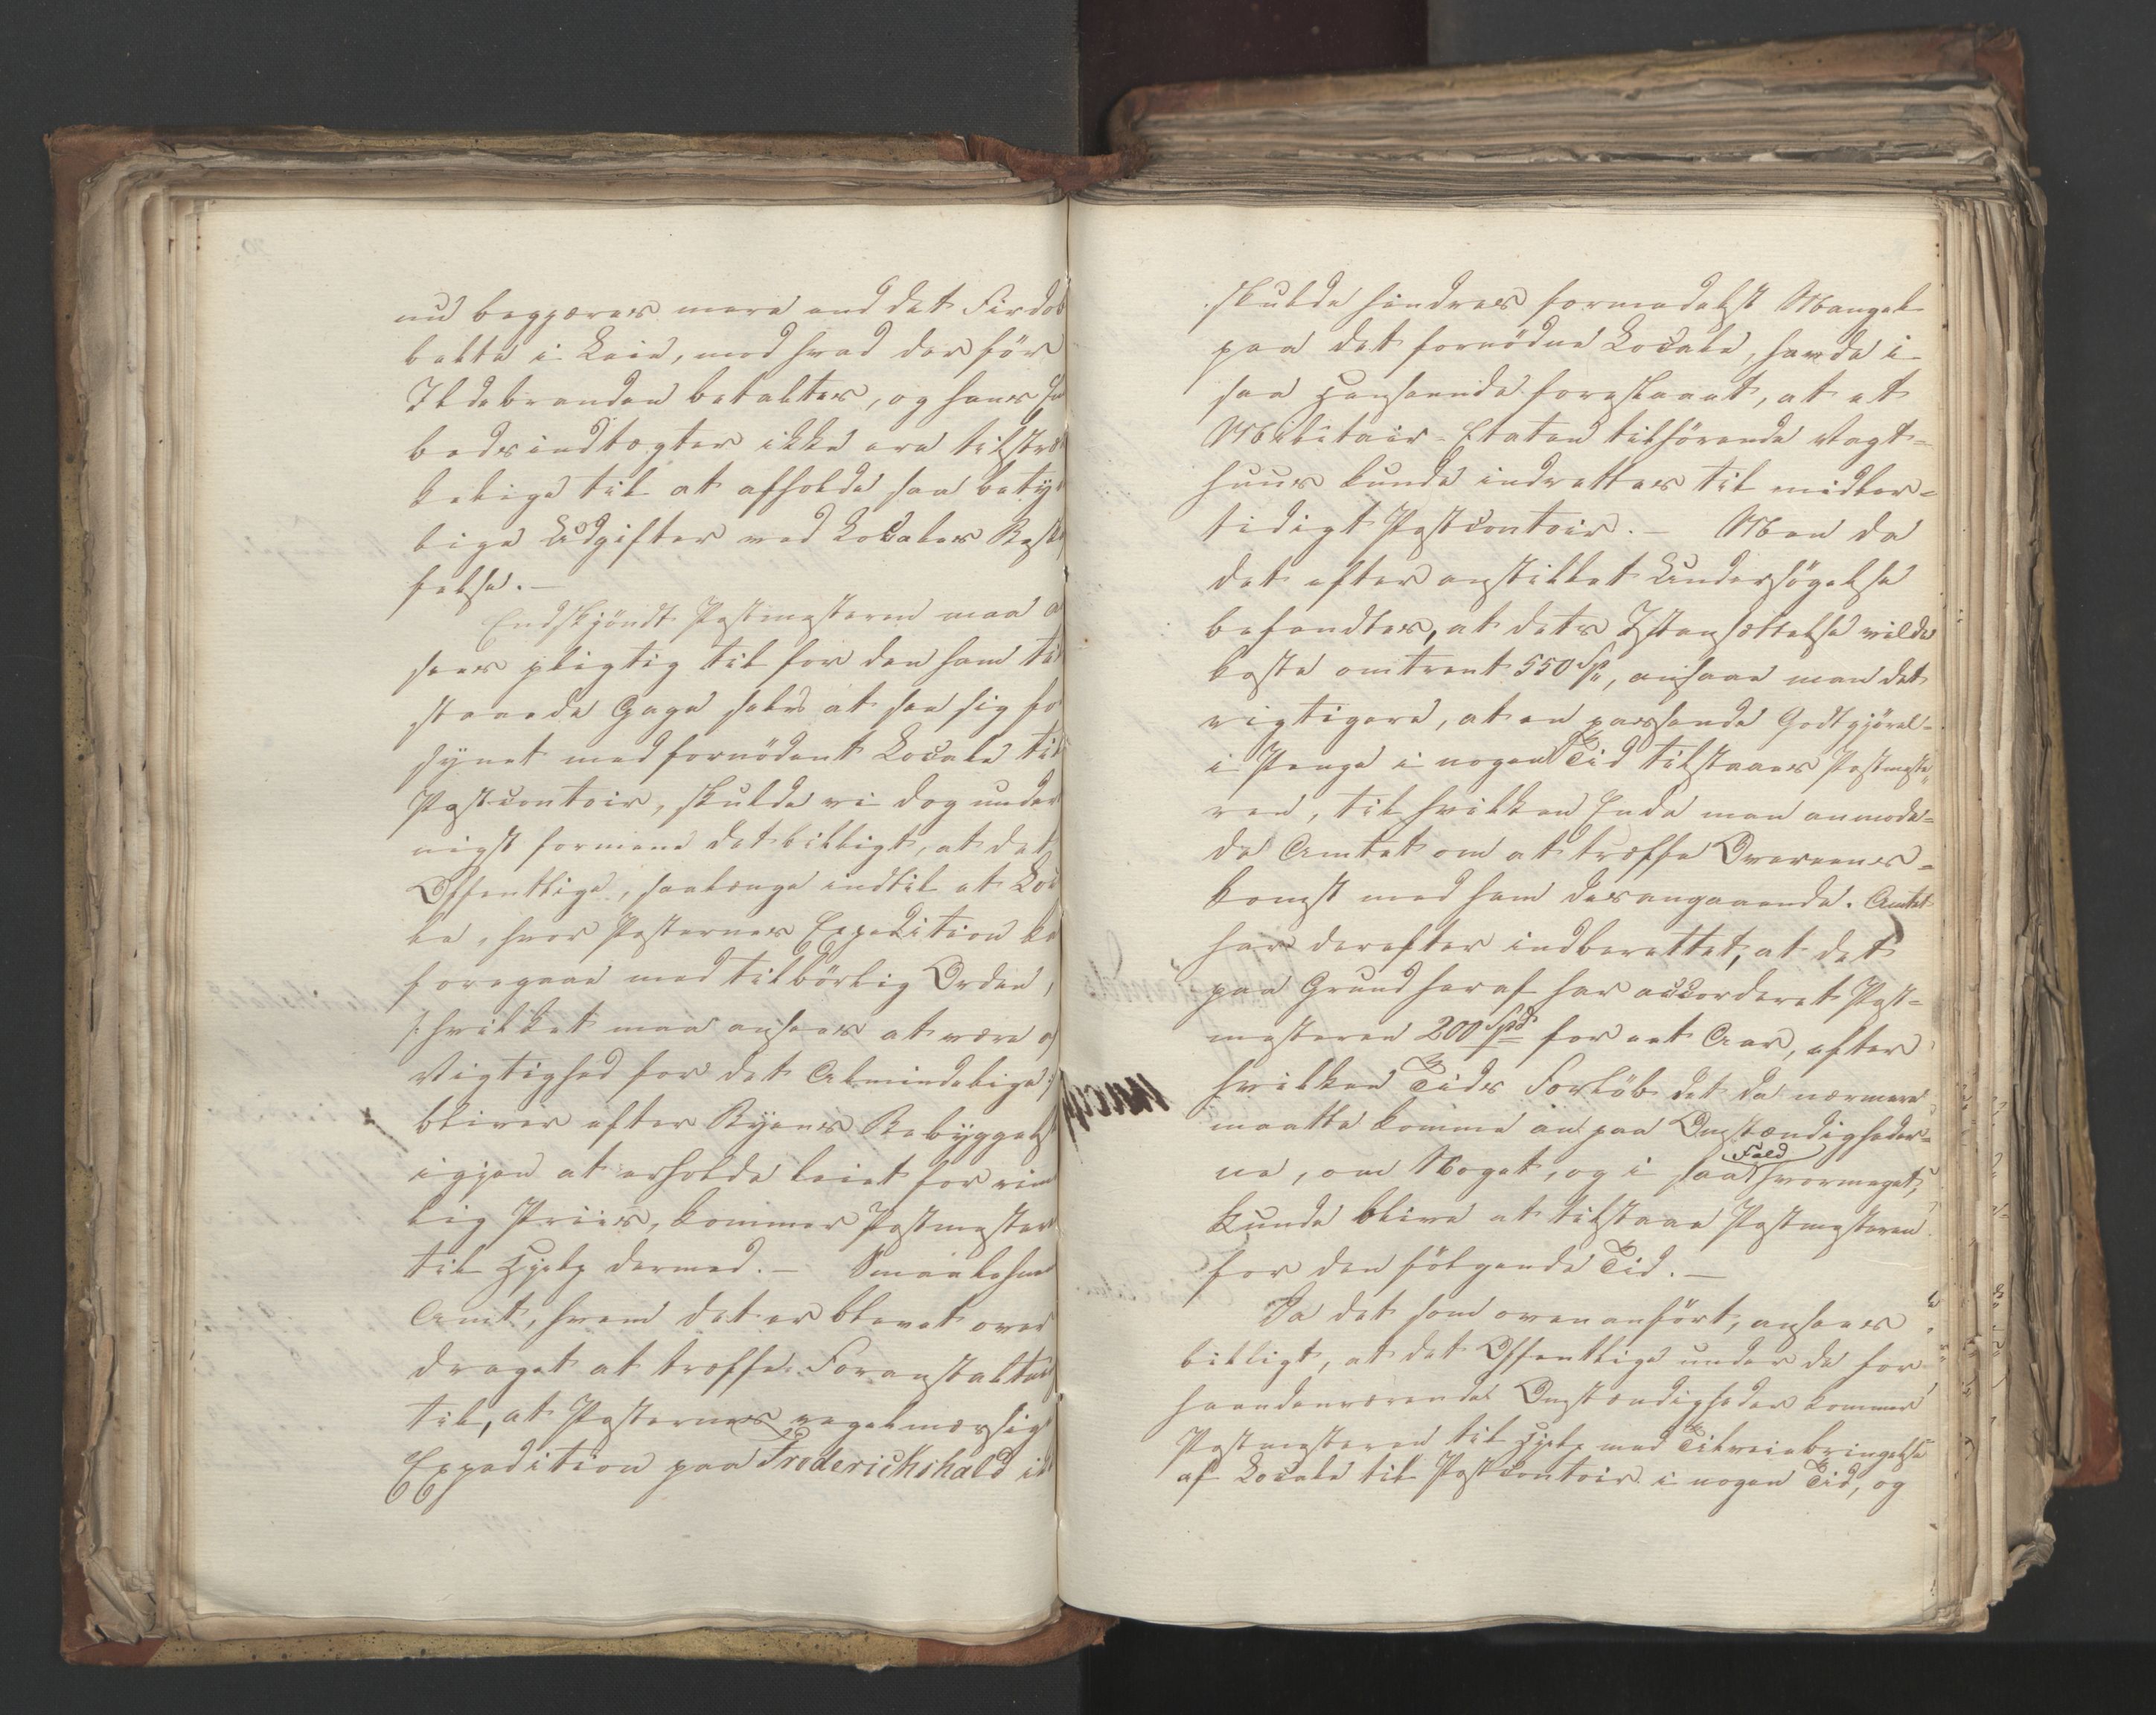 nu begjæres mere end det Firdob
belte i Leie, mod hvad der för
Ildebranden betaltes, og hans Em
bedsindtægter ikke ere tilstræk
kelige til at afholde saa betyde
lige Udgifter ved Locales Bestaf
felse. —
Endskjöndt Postmesteren maa an
sees pligtig til for den ham til
staaede Gage selv at see sig for
synet med fornödent Locale til
Postcontoir, skulde vi dog under
nigst formene det billigt, at det
Offentlige, saalænge indtil at Loca
le, hvor Posternes Expedition kan
foregaae med tilbörlig Orden,
/: hvilket maa ansees at være af
Vigtighed for det Almindelige :/
bliver efter Byens Bebyggelse
igjen at erholde leiet for rime
lig Priis, kommer Postmesteren
til Hjelp dermed. — Smaalehnenes
Amt, hvem det er blevet over
draget at træffe Foranstaltning
til, at Posternes regelmæssige
Expedition paa Frederichshald ikke
skulde hindres formedelst Mangel
paa det fornödne Locale, havde i
saa Henseende foreslaaet, at et
Militair-Etaten tilhörende Vagt-
huus kunde indrettes til midler-
tidigt Postcontoir. — Men da
det efter anstillet Undersögelse
befandtes, at dets Istandsættelse vilde
koste omtrent 550 Sp, ansaae man det
rigtigere, at en passende Godtgjörel-
i Penge i nogen Tid tilstaaes Postmeste
ren, til hvilken Ende man anmode-
de Amtet om at træffe Overeens-
komst med ham desangaaende. Amtet
har derefter indberettet, at det
paa Grund heraf har accorderet Post-
mesteren 200 Spd for eet Aar, efter
hvilken Tids Forlöb det da nærmere
maatte komme an paa Omstændigheder-
ne, om Noget, og i saa Fald hvormeget,
kunde blive at tilstaae Postmesteren
for den fölgende Tid. —
Da det som ovenanfört, ansees
billigt, at det Offentlige under de for
haandenværende Omstændigheder kommer
Postmesteren til Hjelp med Tilveiebringelse
af Locale til Postcontoir i nogen Tid, og